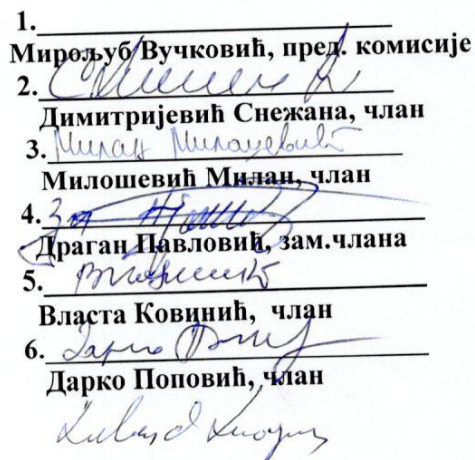 1.
Мирољуб Вучковић, пред. комисије
2.
Димитријевић Снежана, члан
3. Милан Милошевић
Милошевић Милан, члан
4. За
Драган Павловић, зам.члана
5.
Власта Ковинић, члан
6. Дарко
Дарко Поповић, члан